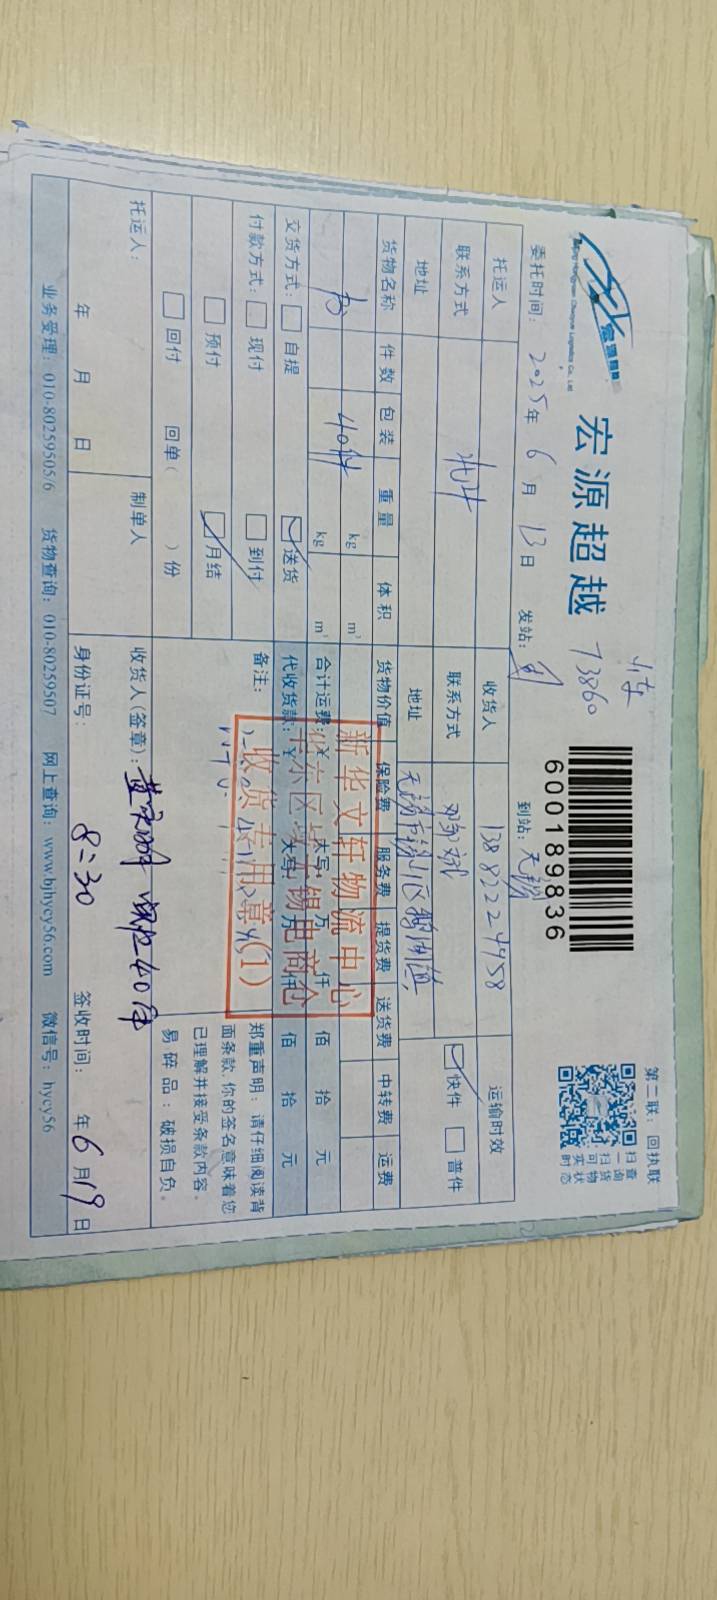 宏源超越
73860
600189836
第二联：回执联
扫一扫
查询货物实时状态
委托时间：2025年6月13日 发站： 到站：无锡
托运人 收货人 13882224958 运输时效
联系方式 联系方式 快件 普件
地址 地址 无锡市锡山区鹅湖镇
货物名称 件数 包装 重量 体积 货物价值 保险费 服务费 提货费 送货费 中转费 运费
kg m³
书 40件 kg m³ 合计运费：¥ 大写： 万 仟 佰 拾 元
交货方式： 自提 送货 代收货款：¥ 大写： 万 仟 佰 拾 元
付款方式： 现付 到付 备注：
预付 月结
回付 回单（ ）份
新华文轩物流中心
华东区域无锡电商仓
收货专用章(1)
郑重声明：请仔细阅读背
面条款，你的签名意味着您
已理解并接受条款内容。
易碎品：破损自负。
托运人： 制单人 收货人(签章)： 实收40件
年 月 日 身份证号： 8:30 签收时间： 年6月19日
业务受理：010-80259505/6 货物查询：010-80259507 网上查询：www.bjhycy56.com 微信号：hycy56